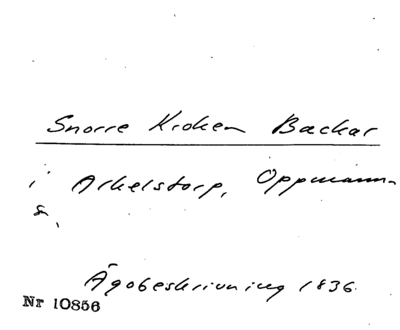 Snorre Kroken Backar
i Arkelstorp, Oppmanna
s,
Ägobeskrivning 1836.
Nr 10856